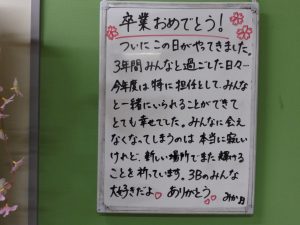 卒業おめでとう!
ついにこの日がやってきました。
3年間みんなと過ごした日々…
今年度は特に担任として、みんな
と一緒にいられることができて
とても幸せでした。みんなに会え
なくなってしまうのは本当に寂しい
けれど、新しい場所でまた輝ける
ことを祈っています。3Bのみんな
大好きだよ♡ ありがとう